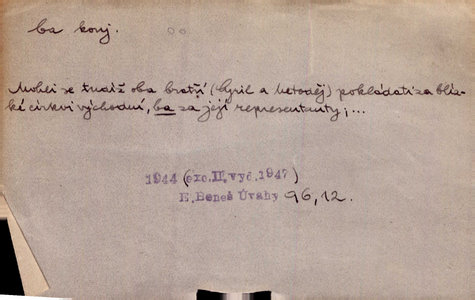 ba konj.
Mohli se tudíž oba bratří (Cyril a Metoděj) pokládati za blíz-
ké církvi východní, ba za její representanty; ...
1944 (exc. II. vyd. 1947)
E. Beneš Úvahy 96, 12.